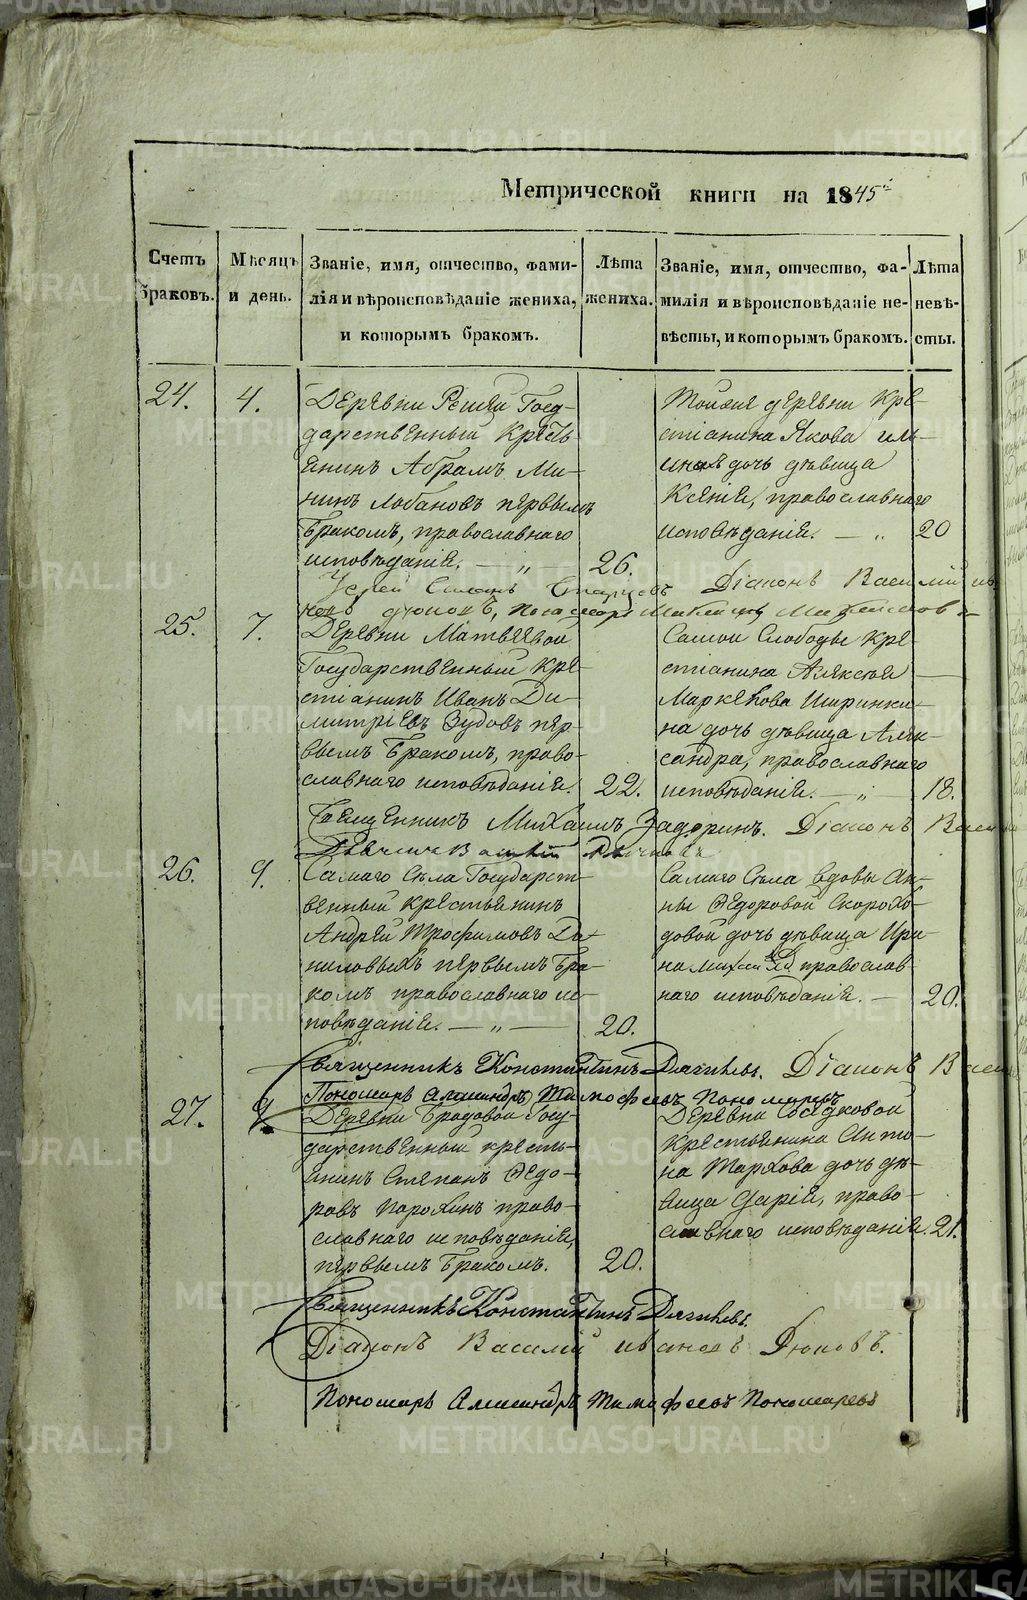 Метрической книги на 1845й
Счетъ браковъ.
Мѣсяцъ и день.
Званіе, имя, отчество, фами-
лія и вѣроисповѣданіе жениха,
и которымъ бракомъ.
Лѣта
жениха.
Званіе, имя, отчество, фа-
милія и вѣроисповѣданіе не-
вѣсты, и которымъ бракомъ.
Лѣта
невѣ-
сты.
24.
4.
Деревни Госу-
дарственный Кресть
янинъ Абрамъ Ми-
нинъ Лобановъ первымъ
бракомъ, православнаго
исповѣданія. — „ —
26.
Тойже деревни Кре-
стіанина Якова Иль-
ина дочь дѣвица
Ксенія, православнаго
исповѣданія. — „
20
Іерей Діаконъ Василий
Дюковъ,
25.
7.
Деревни Матвеевой
Государственный Кре-
стіанинъ Иванъ Ди-
митріевъ Зудовъ пер-
вымъ бракомъ, право-
славнаго исповѣданія.
22.
Самой Слободы Кре-
стіанина Алексея
Маркелова Ширинки-
на дочь дѣвица Алек-
сандра, православнаго
исповѣданія. — „ —
18.
Священникъ Михаилъ Задоринъ. Діаконъ
26.
9.
Самаго Села Государст-
венный Крестьянинъ
Андрей Трофимовъ Да-
ниловыхъ первымъ бра-
комъ православнаго ис-
повѣданія. — „ —
20.
Самаго Села вдовы Ан-
ны Федоровой Скорохо-
довой дочь дѣвица Ири
на православ-
наго исповѣданія. —
20.
Священникъ Константинъ Діаконъ
Пономарь Александръ Тимофеевъ Пономаревъ
27.
9.
Деревни Бродовой Госу-
дарственный кресть-
янинъ Степанъ Федо-
ровъ Парохинъ право-
славнаго исповѣданія,
первымъ бракомъ.
20.
Деревни
Крестьянина Анто-
на Тархова дочь дѣ-
вица Дарія, право-
славнаго исповѣданія.
21.
Священникъ Константинъ
Діаконъ Василий Ивановъ Дюковъ.
Пономарь Александръ Тимофеевъ Пономаревъ
METRIKI.GASO-URAL.RU